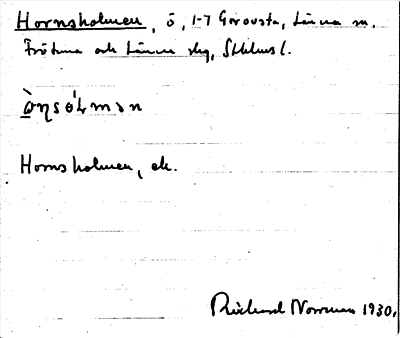 Hornsholmen, ö, 1-7 Görovsta, Länna sn.
Frötuna och Länna skg, Sthlms l.
ὰηsόLmən
Hornsholmen, ek.
Rickard Norman 1930.